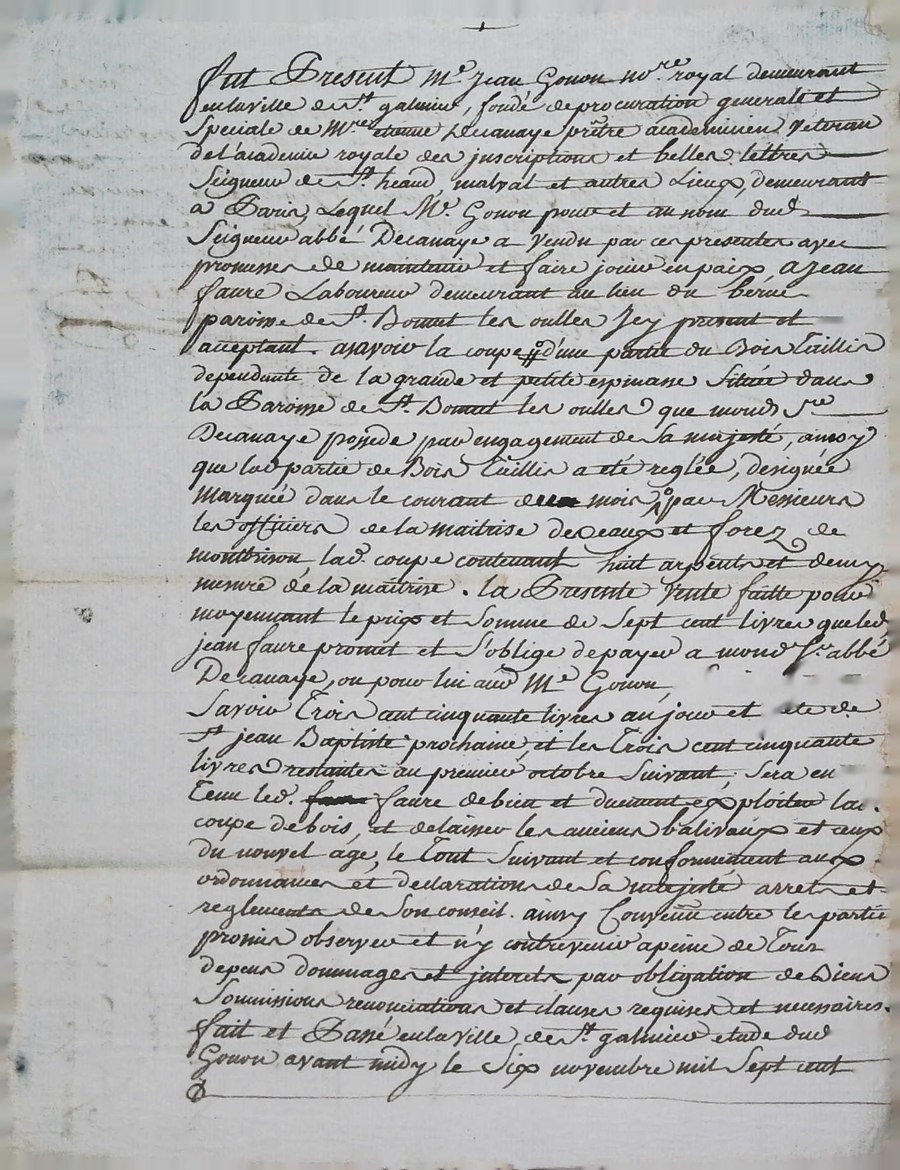 fut Present Me Jean Gonon nore royal demeurant
en la ville de St galmier, fondé de procuration generale et
Speciale de Mre etienne Decanaye prêtre academicien veteran
de l'academie royale des inscriptions et belles lettres
Seigneur de St heand, malval et autres Lieux, demeurant
a Paris, Lequel Me Gonon pour et au nom dud
Seigneur abbé Decanaye a vendu par ces presentes avec
promesses de maintenir et faire jouir en paix, a Jean
faure Laboureur demeurant au lieu du
paroisse de St Bonnet les oulles Icy present et
acceptant. asavoir la coupe d'une partie du Bois Taillis
dependante de la grande et petite espinasse Située dans
la Paroisse de St Bonnet les oulles que mond Sre
Decanaye possede par engagement de Sa majesté, ainsy
que lad partie de Bois Taillis a eté reglée, designée
Marquée dans le courant de mois par Messieurs
les officiers de la maitrise des eaux et forez de
montbrison, lad. coupe contenant huit arpents et demy
mesure de la maitrise. la Presente vente faitte pour
moyennant le prix et Somme de Sept cent livres que led
jean faure promet et S'oblige de payer a mond Sr abbé
Decanaye, ou pour lui aud Me Gonon,
Savoir Trois cent cinquante livres au jour et fete de
St jean Baptiste prochaine, et les Trois cent cinquante
livres restantes au premier octobre Suivant; Sera en
Tenu led. faure de bien et duement exploiter lad.
coupe de bois, et delaisser les anciens balivaux et ceux
du nouvel age, le Tout Suivant et conformement aux
ordonnances et declarations de Sa majesté arrets et
reglements de Son conseil. ainsy Convenu entre les partie
promis observer et n'y contrevenir a peine de Tous
depens dommages et interets, par obligation de Biens
Soumissions renonciations et clauses requises et necessaires.
fait et Passé en la ville de St galmier etude dud
Gonon avant midy le Six novembre mil Sept cent